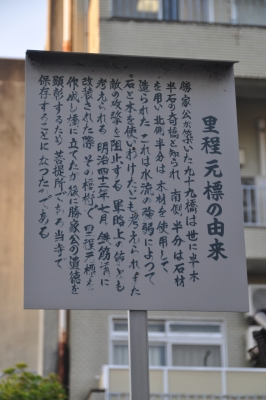 里程元標の由来
勝家公が築いた九十九橋は世に半木
半石の奇橋と知られ 南側半分は石材
を用い 北側半分は木材を使用して
造られた これは水流の強弱によって
石と木を使いわけたとも考えられまた
敵の攻撃を阻止する 軍略上の備とも
考えられる 明治四十二年七月 鉄筋橋に
改装された際 その橋桁で 里程元標を
作成し橋に立てたが後に勝家公の遺徳を
顕彰するため 菩提所である当寺で
保存することになったのである